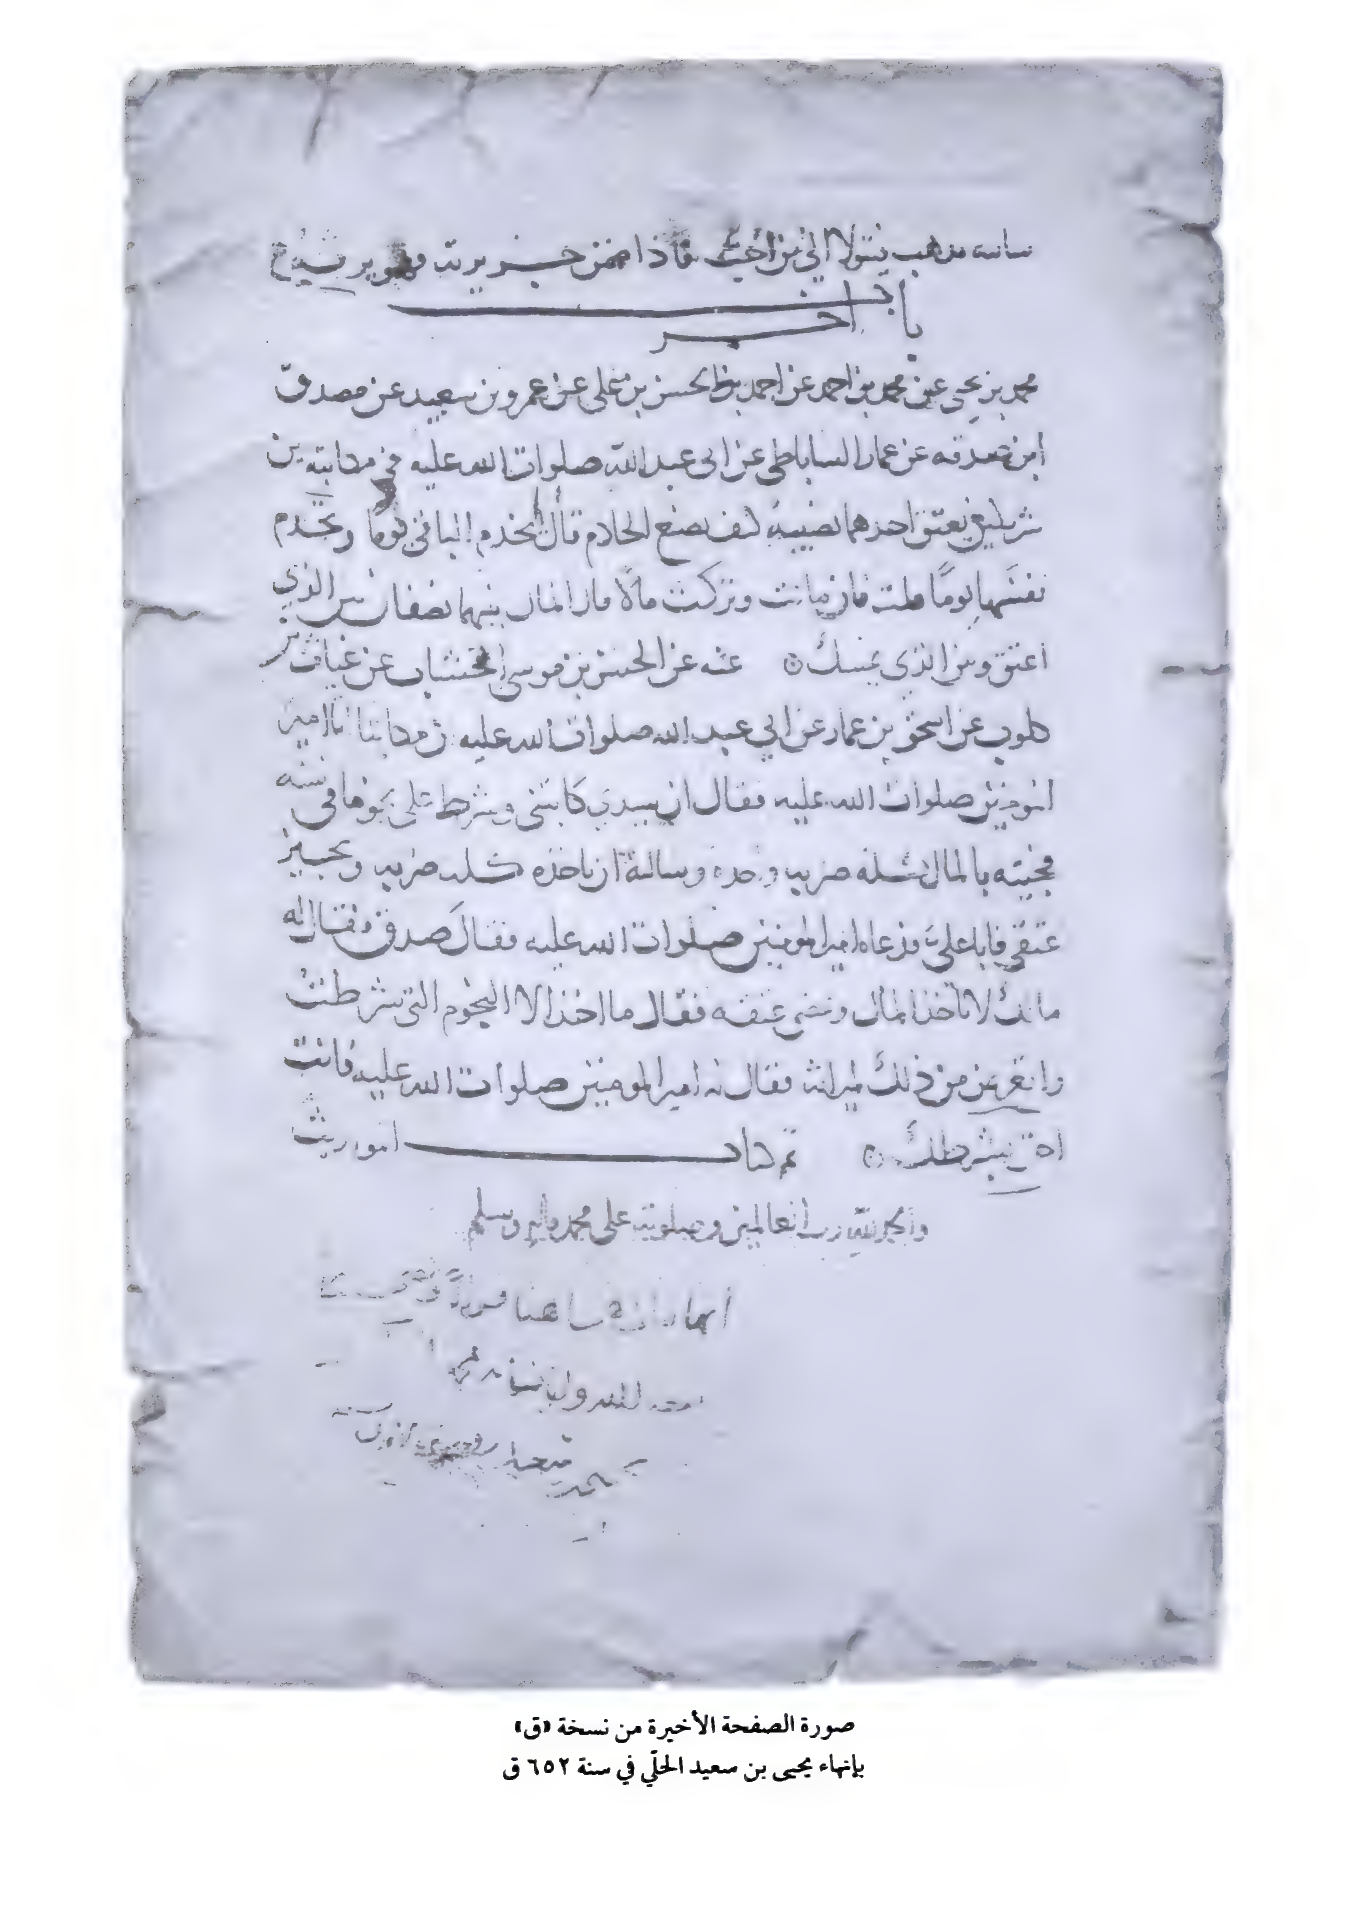 سائبة فليذهب فيتولا الى من احب فاذا ضمن جريرته فهو يرثه
باب اخر
محمد بن يحيى عن محمد بن احمد عن احمد بن الحسن بن على عن عمرو بن سعيد عن مصدق
ابن صدقه عن عمار الساباطى عن ابى عبد الله صلوات الله عليه فى مكاتبه بين
شريكين يعتق احدهما نصيبه كيف يصنع الخادم قال يخدم الباقى يومًا وتخدم
نفسها يومًا قلت فان ماتت وتركت مالًا قال المال بينهما نصفان بين الذى
اعتق وبين الذى يمسك عنه عن الحسن بن موسى الخشاب عن غياث بن
كلوب عن اسحق بن عمار عن ابى عبد الله صلوات الله عليه ان مكاتبا اتا امير
المومنين صلوات الله عليه فقال ان سيدى كاتبنى وشرط على نجوما فى سنه
فجيته بالمال كله ضربه وحده وسالته ان ياخذه كله ضربه ويجيز
عتقى فابا على فدعاه امير المومنين صلوات الله عليه فقال صدق فقال له
مالك لا تاخذ المال وتمضى عتقه فقال ما اخذ الا النجوم التى شرطت
واتعرض من ذلك لميراثه فقال له امير المومنين صلوات الله عليه فانت
احق بشرطك تم كتاب المواريث
والحمد لله رب العالمين وصلوته على محمد واله وسلم
صورة الصفحة الأخيرة من نسخة «ق»
بإنهاء يحيى بن سعيد الحلّي في سنة ٦٥٢ ق